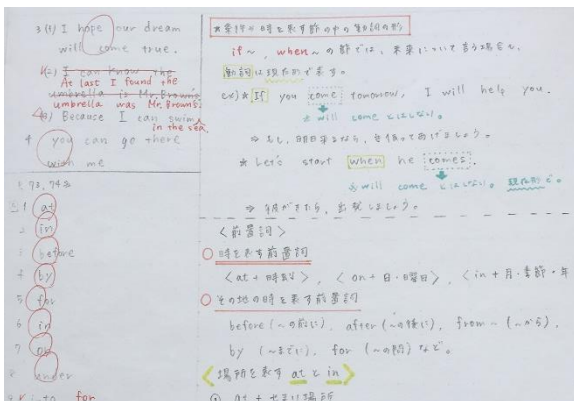 3 (1) I hope our dream
will come true.
(2) I can know the
At last I found the
umbrella is Mr. Brown's
umbrella was Mr. Brown's
(3) Because I can swim
in the sea.
4 you can go there
with me
P. 73, 74
1 at
2 in
3 before
4 by
5 for
6 in
7 on
8 under
for
★条件や時を表す節の中の動詞の形
if～, when～の節では、未来について言う場合も、
動詞は現在形で表す。
ex) ★ If you come tomorrow, I will help you.
will come とはしない。
⇒ もし、明日来るなら、手伝ってあげましょう。
★ Let's start when he comes.
will come とはしない。現在形で。
⇒ 彼がきたら、出発しましょう。
<前置詞>
○時を表す前置詞
<at + 時刻>, <on + 日・曜日>, <in + 月・季節・年
○その他の時を表す前置詞
before (～の前に), after (～の後に), from ～ (～から),
by (～までに), for (～の間) など。
<場所を表す at と in>
① at + せまい場所